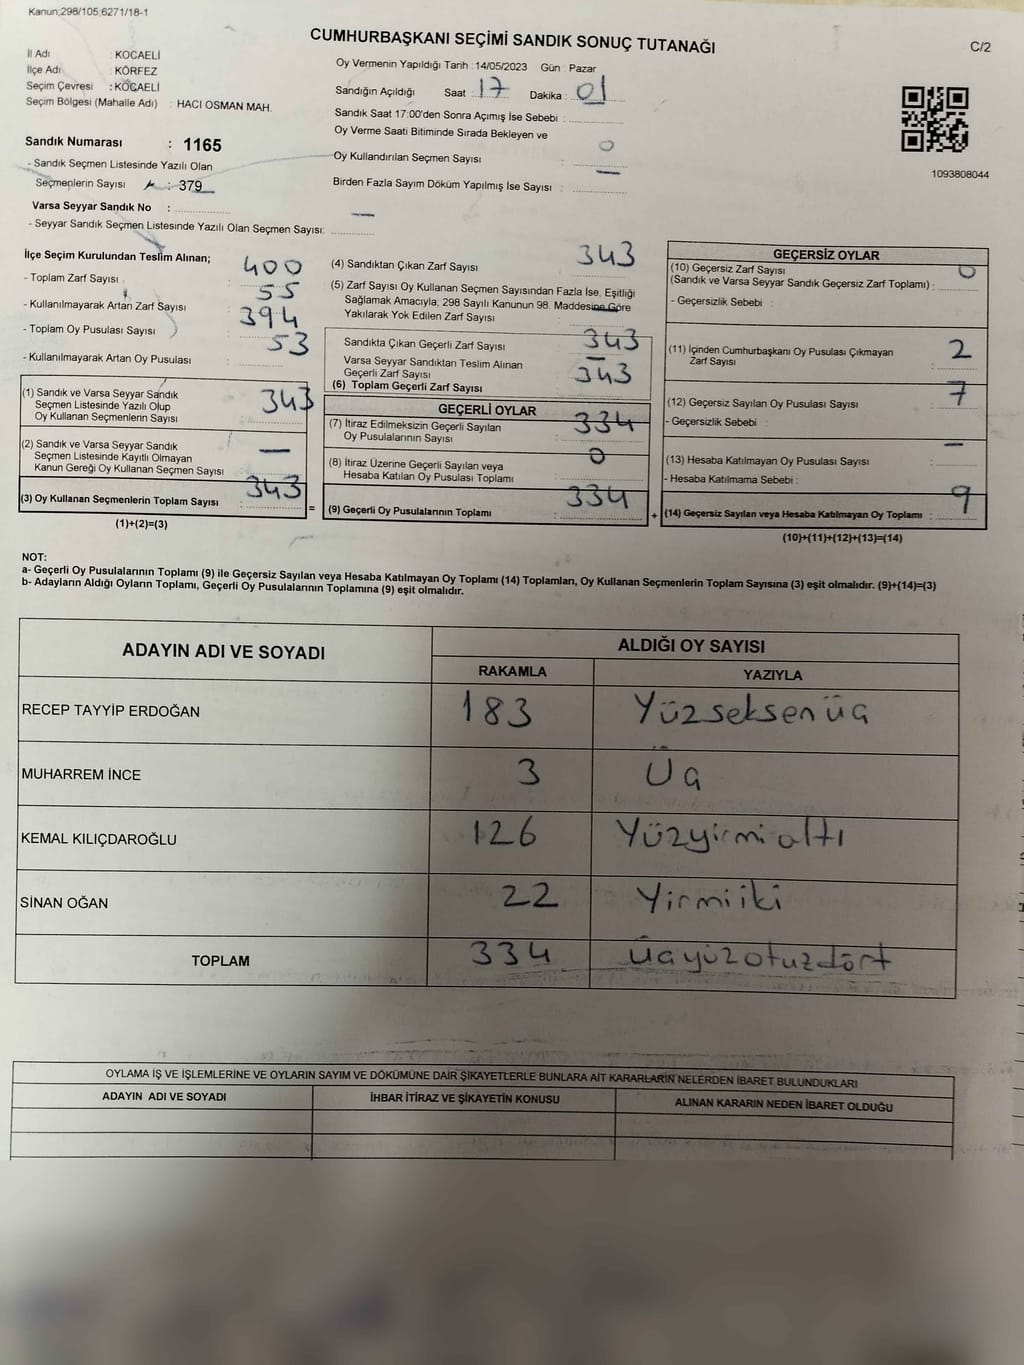 Kanun:298/105,6271/18-1
CUMHURBAŞKANI SEÇİMİ SANDIK SONUÇ TUTANAĞI
C/2
İl Adı : KOCAELİ
İlçe Adı : KÖRFEZ
Seçim Çevresi : KOCAELİ
Seçim Bölgesi (Mahalle Adı) : HACI OSMAN MAH.
Sandık Numarası : 1165
- Sandık Seçmen Listesinde Yazılı Olan
Seçmenlerin Sayısı : 379
Varsa Seyyar Sandık No :
- Seyyar Sandık Seçmen Listesinde Yazılı Olan Seçmen Sayısı: —
Oy Vermenin Yapıldığı Tarih : 14/05/2023 Gün : Pazar
Sandığın Açıldığı Saat : 17 Dakika : 01
Sandık Saat 17:00'den Sonra Açımış İse Sebebi :
Oy Verme Saati Bitiminde Sırada Bekleyen ve
Oy Kullandırılan Seçmen Sayısı : 0
Birden Fazla Sayım Döküm Yapılmış İse Sayısı : —
1093808044
İlçe Seçim Kurulundan Teslim Alınan;
- Toplam Zarf Sayısı : 400
- Kullanılmayarak Artan Zarf Sayısı : 55
- Toplam Oy Pusulası Sayısı : 394
- Kullanılmayarak Artan Oy Pusulası : 53
(1) Sandık ve Varsa Seyyar Sandık
Seçmen Listesinde Yazılı Olup
Oy Kullanan Seçmenlerin Sayısı : 343
(2) Sandık ve Varsa Seyyar Sandık
Seçmen Listesinde Kayıtlı Olmayan
Kanun Gereği Oy Kullanan Seçmen Sayısı : —
(3) Oy Kullanan Seçmenlerin Toplam Sayısı : 343
(1)+(2)=(3)
=
(4) Sandıktan Çıkan Zarf Sayısı : 343
(5) Zarf Sayısı Oy Kullanan Seçmen Sayısından Fazla İse, Eşitliği
Sağlamak Amacıyla, 298 Sayılı Kanunun 98. Maddesine Göre
Yakılarak Yok Edilen Zarf Sayısı : —
Sandıkta Çıkan Geçerli Zarf Sayısı : 343
Varsa Seyyar Sandıktan Teslim Alınan
Geçerli Zarf Sayısı : —
(6) Toplam Geçerli Zarf Sayısı : 343
GEÇERLİ OYLAR
(7) İtiraz Edilmeksizin Geçerli Sayılan
Oy Pusulalarının Sayısı : 334
(8) İtiraz Üzerine Geçerli Sayılan veya
Hesaba Katılan Oy Pusulası Toplamı : 0
(9) Geçerli Oy Pusulalarının Toplamı : 334
+
GEÇERSİZ OYLAR
(10) Geçersiz Zarf Sayısı
(Sandık ve Varsa Seyyar Sandık Geçersiz Zarf Toplamı) : 0
- Geçersizlik Sebebi :
(11) İçinden Cumhurbaşkanı Oy Pusulası Çıkmayan
Zarf Sayısı : 2
(12) Geçersiz Sayılan Oy Pusulası Sayısı : 7
- Geçersizlik Sebebi :
(13) Hesaba Katılmayan Oy Pusulası Sayısı : —
- Hesaba Katılmama Sebebi :
(14) Geçersiz Sayılan veya Hesaba Katılmayan Oy Toplamı : 9
(10)+(11)+(12)+(13)=(14)
NOT:
a- Geçerli Oy Pusulalarının Toplamı (9) ile Geçersiz Sayılan veya Hesaba Katılmayan Oy Toplamı (14) Toplamları, Oy Kullanan Seçmenlerin Toplam Sayısına (3) eşit olmalıdır. (9)+(14)=(3)
b- Adayların Aldığı Oyların Toplamı, Geçerli Oy Pusulalarının Toplamına (9) eşit olmalıdır.
ADAYIN ADI VE SOYADI ALDIĞI OY SAYISI
RAKAMLA YAZIYLA
RECEP TAYYİP ERDOĞAN 183 Yüzseksenüç
MUHARREM İNCE 3 Üç
KEMAL KILIÇDAROĞLU 126 Yüzyirmialtı
SİNAN OĞAN 22 Yirmiiki
TOPLAM 334 Üçyüzotuzdört
OYLAMA İŞ VE İŞLEMLERİNE VE OYLARIN SAYIM VE DÖKÜMÜNE DAİR ŞİKAYETLERLE BUNLARA AİT KARARLARIN NELERDEN İBARET BULUNDUKLARI
ADAYIN ADI VE SOYADI İHBAR İTİRAZ VE ŞİKAYETİN KONUSU ALINAN KARARIN NEDEN İBARET OLDUĞU